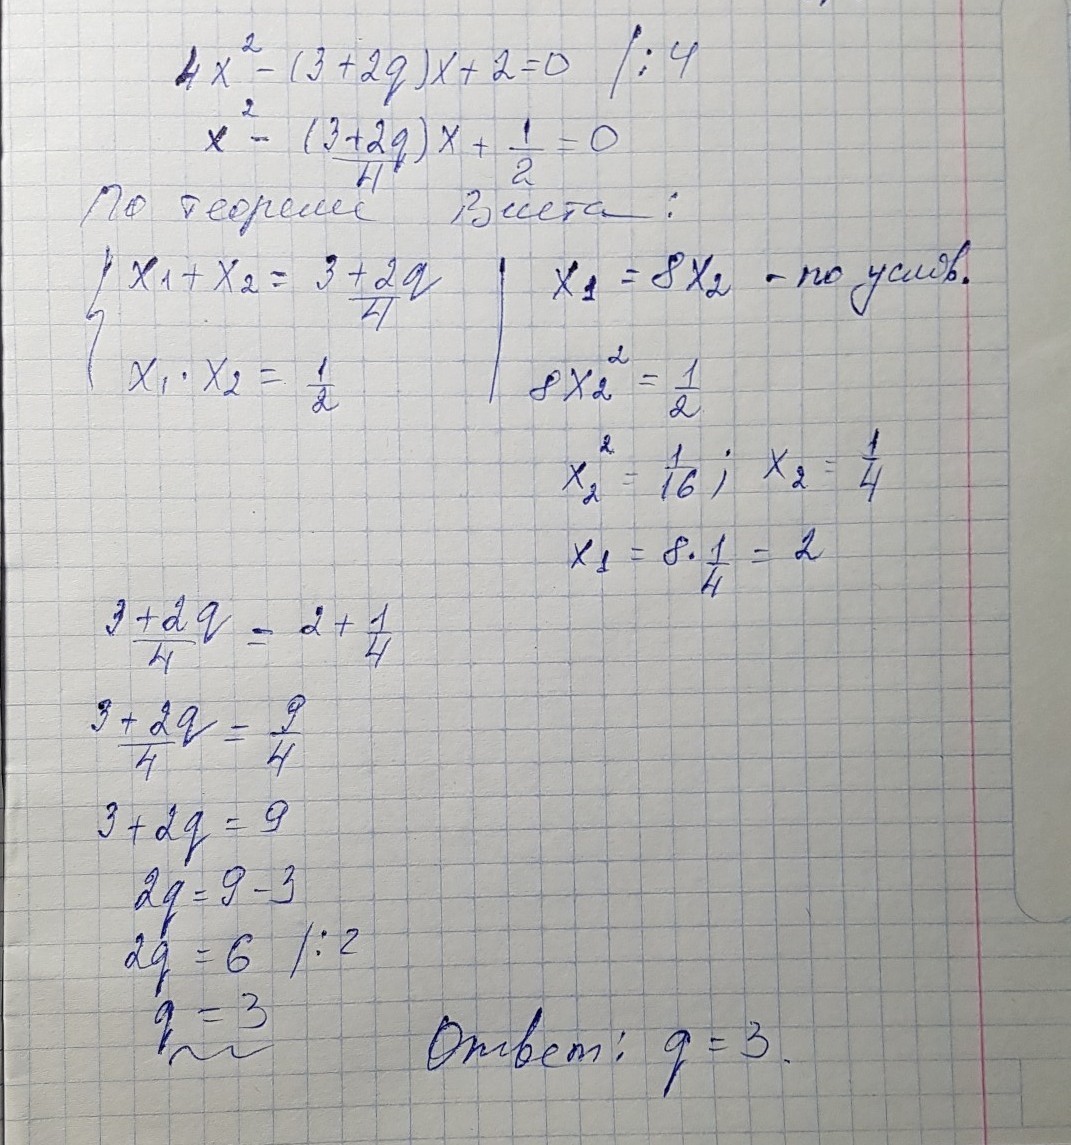 4x² - (3+2q)x+2=0 /:4
x² - (3+2q)/4 x + 1/2 = 0
По теореме Виета:
{ x₁+x₂ = (3+2q)/4 | x₁ = 8x₂ - по услов.
x₁·x₂ = 1/2 | 8x₂² = 1/2
x₂² = 1/16; x₂ = 1/4
x₁ = 8·1/4 = 2
(3+2q)/4 = 2+1/4
(3+2q)/4 = 9/4
3+2q=9
2q=9-3
2q=6 /:2
q=3
Ответ: q=3.